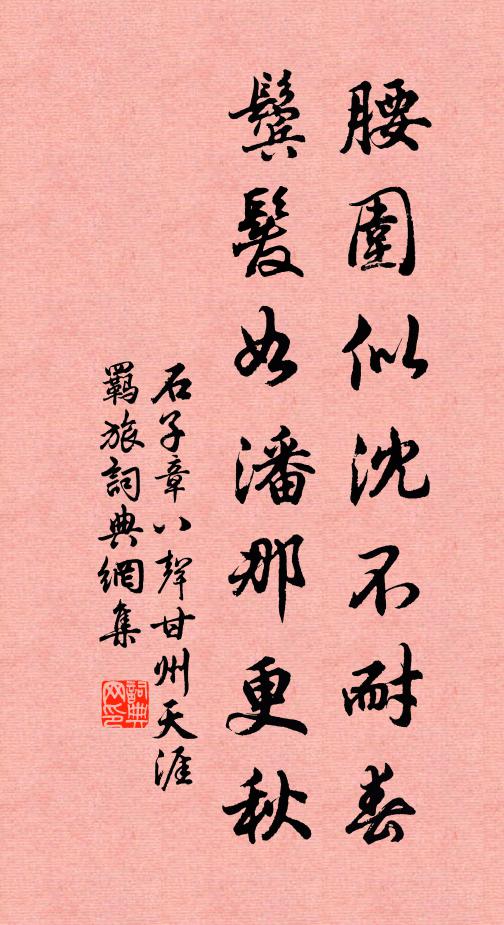 腰圍似沈不耐春
鬢髮如潘那更秋
石子章八聲甘州天涯
羈旅詞典網集
詞典网印